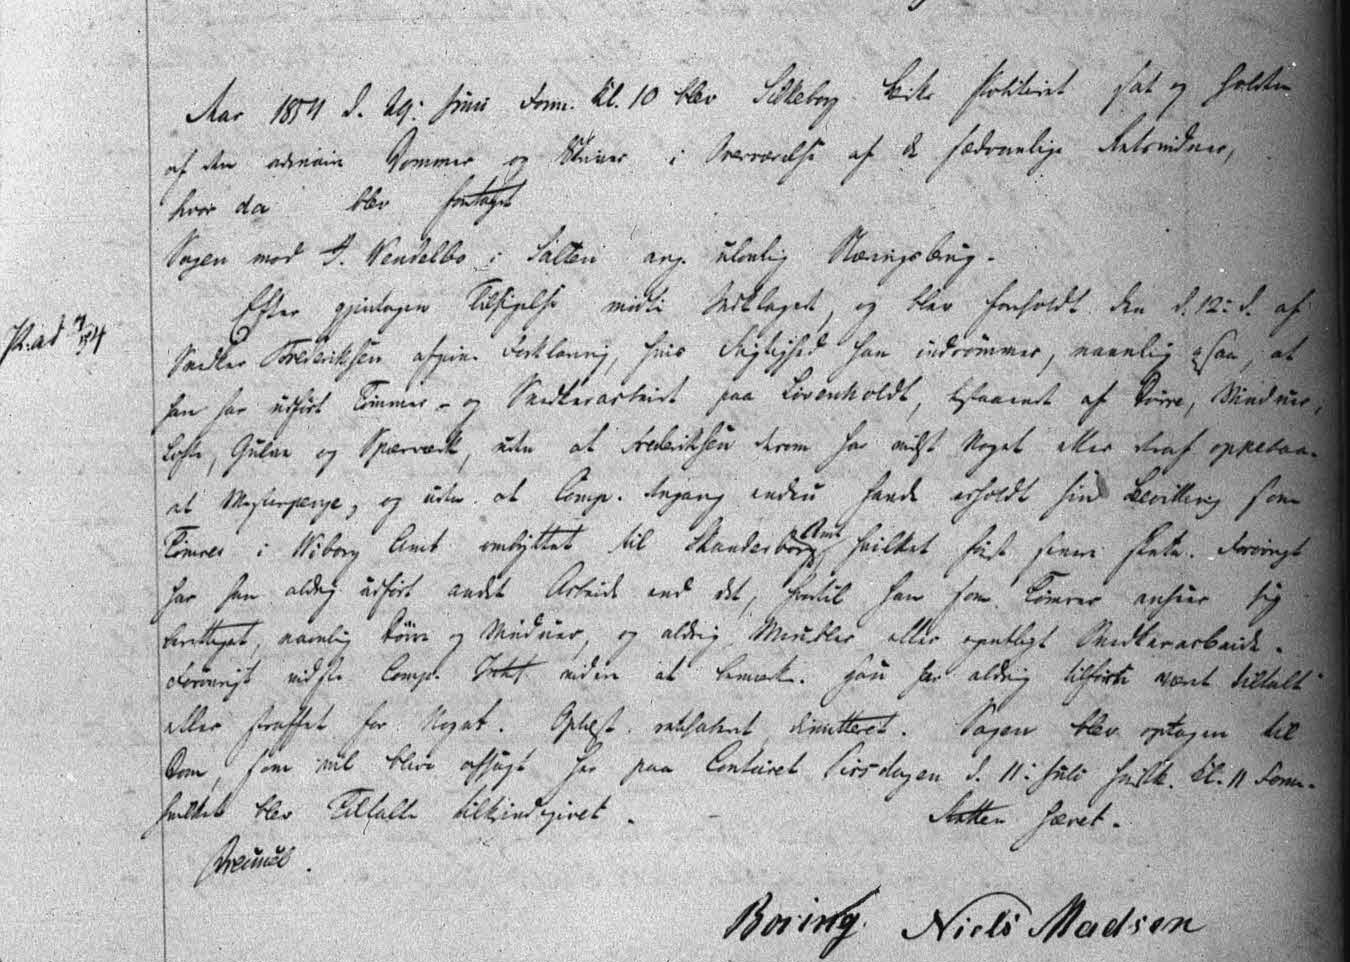 Aar 1854 d. 29: Juni Form. Kl. 10 blev Silkeborg Birks Politiret sat og holdten
af den ordinaire Dommer og Skriver i Overværelse af de sædvanlige Retsvidner,
hvor da blev foretaget
Sagen mod P. Vendelbo i Salten ang. ulovlig Næringsbrug.
Efter gjentagen Tilsigelse mødte Indklagede, og blev foreholdt den d. 12: d. af
Snedker Frederiksen afgivne Forklaring, hvis Rigtighed han indrømmer, navnlig ogsaa, at
han har udført Tømmer- og Snedkerarbeide paa Løvenholdt, bestaaende af Døre, Vinduer,
Lofte, Gulve og Spærværk, uden at Frederiksen derom har vidst Noget eller deraf oppebaa-
et Mesterpenge, og uden at Comp. dengang endnu havde erholdt sin Bevilling som
Tømrer i Wiborg Amt ombyttet til Skanderborg Amt, hvilket først senere skete. Forøvrigt
har han aldrig udført andet Arbeide end det, hvortil han som Tømrer anseer sig
berettiget, navnlig Døre og Vinduer, og aldrig Meubler eller egentligt Snedkerarbeide.
Forøvrigt vidste Comp. Intet videre at bemærke. Han har aldrig tilforn været tiltalt
eller straffet for Noget. Oplæst, vedtaget, dimitteret. Sagen blev optagen til
Dom, som vil blive afsagt her paa Contoiret Tirsdagen d. 11: Juli Kl. 11 Form.
hvilket blev Tiltalte tilkjendegivet. Retten hævet.
Boring. Niels Madsen